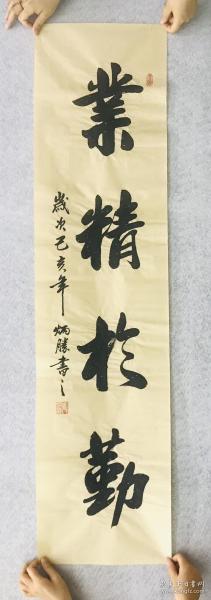 業精於勤
歲次己亥年 炳勝書之